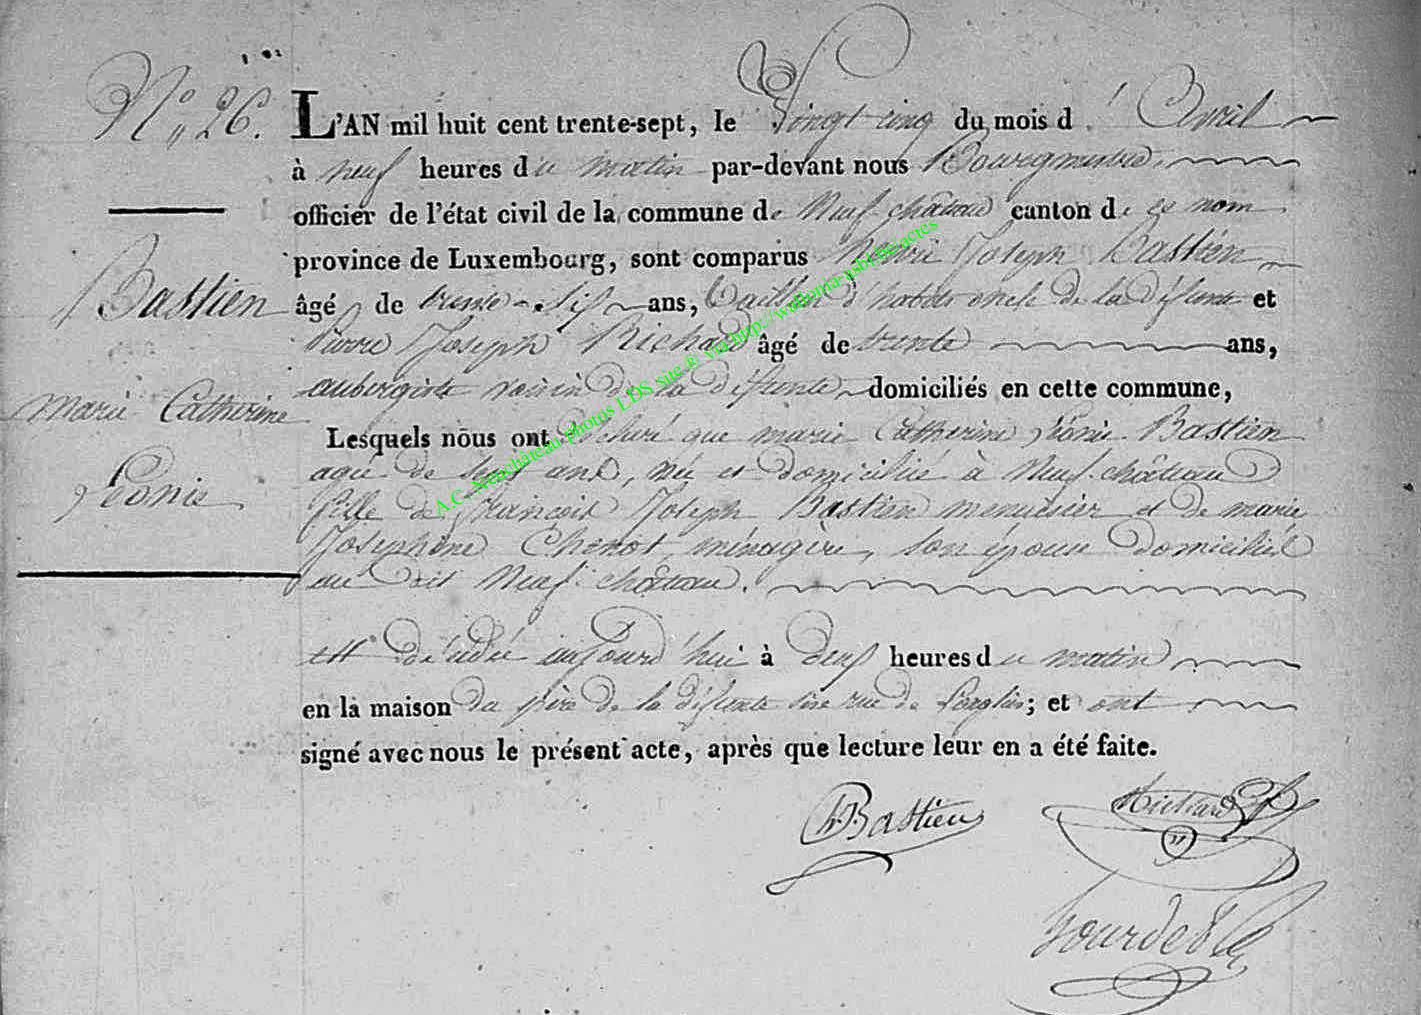 N° 26.
L'AN mil huit cent trente-sept, le Vingt cinq du mois d' Avril
à neuf heures du matin par-devant nous Bourgmestre
officier de l'état civil de la commune de Neufchâteau canton de ce nom
province de Luxembourg, sont comparus Joseph Bastien
Bastien
âgé de trente-six ans, Tailleur d'habits oncle de la défunte et
Pierre Joseph Richard âgé de trente ans,
aubergiste voisin de la défunte domiciliés en cette commune,
Marie Catherine
Léonie
Lesquels nous ont déclaré que marie Catherine Léonie Bastien
agée de ans, née et domiciliée à Neufchâteau
fille de François Joseph Bastien menuisier et de marie
Josephine Chenot, ménagère, son épouse domiciliés
au dit Neufchâteau.
est décédée aujourd'hui à deux heures du matin
en la maison du père de la défunte sise rue de Longlier; et ont
signé avec nous le présent acte, après que lecture leur en a été faite.
Bastien
Richard
A.C. Neufchâteau photos LDS sue & via http://wallonia-asbl.be/actes